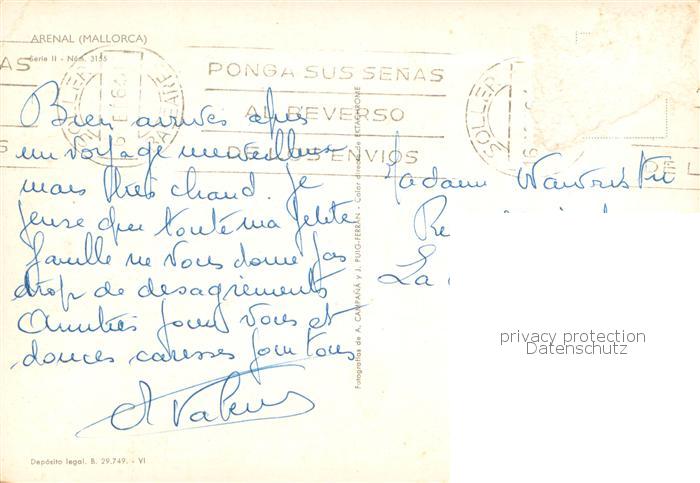 ARENAL (MALLORCA)
Serie II - Núm. 3155
PONGA SUS SEÑAS
AL REVERSO
DE LOS ENVIOS
AS
S
DE L
SOLLER
BALEARES
SOLLER
Bien arrivés après
un voyage merveilleux
mais très chaud. Je
pense que toute ma petite
famille ne vous donne pas
trop de desagréments
Amitiés pour vous et
douces caresses pour tous
Madame
Re
La
Fotografías de A. CAMPAÑÁ y J. PUIG-FERRÁN - Color directo de EKTACHROME
privacy protection
Datenschutz
Depósito legal. B. 29.749. - VI